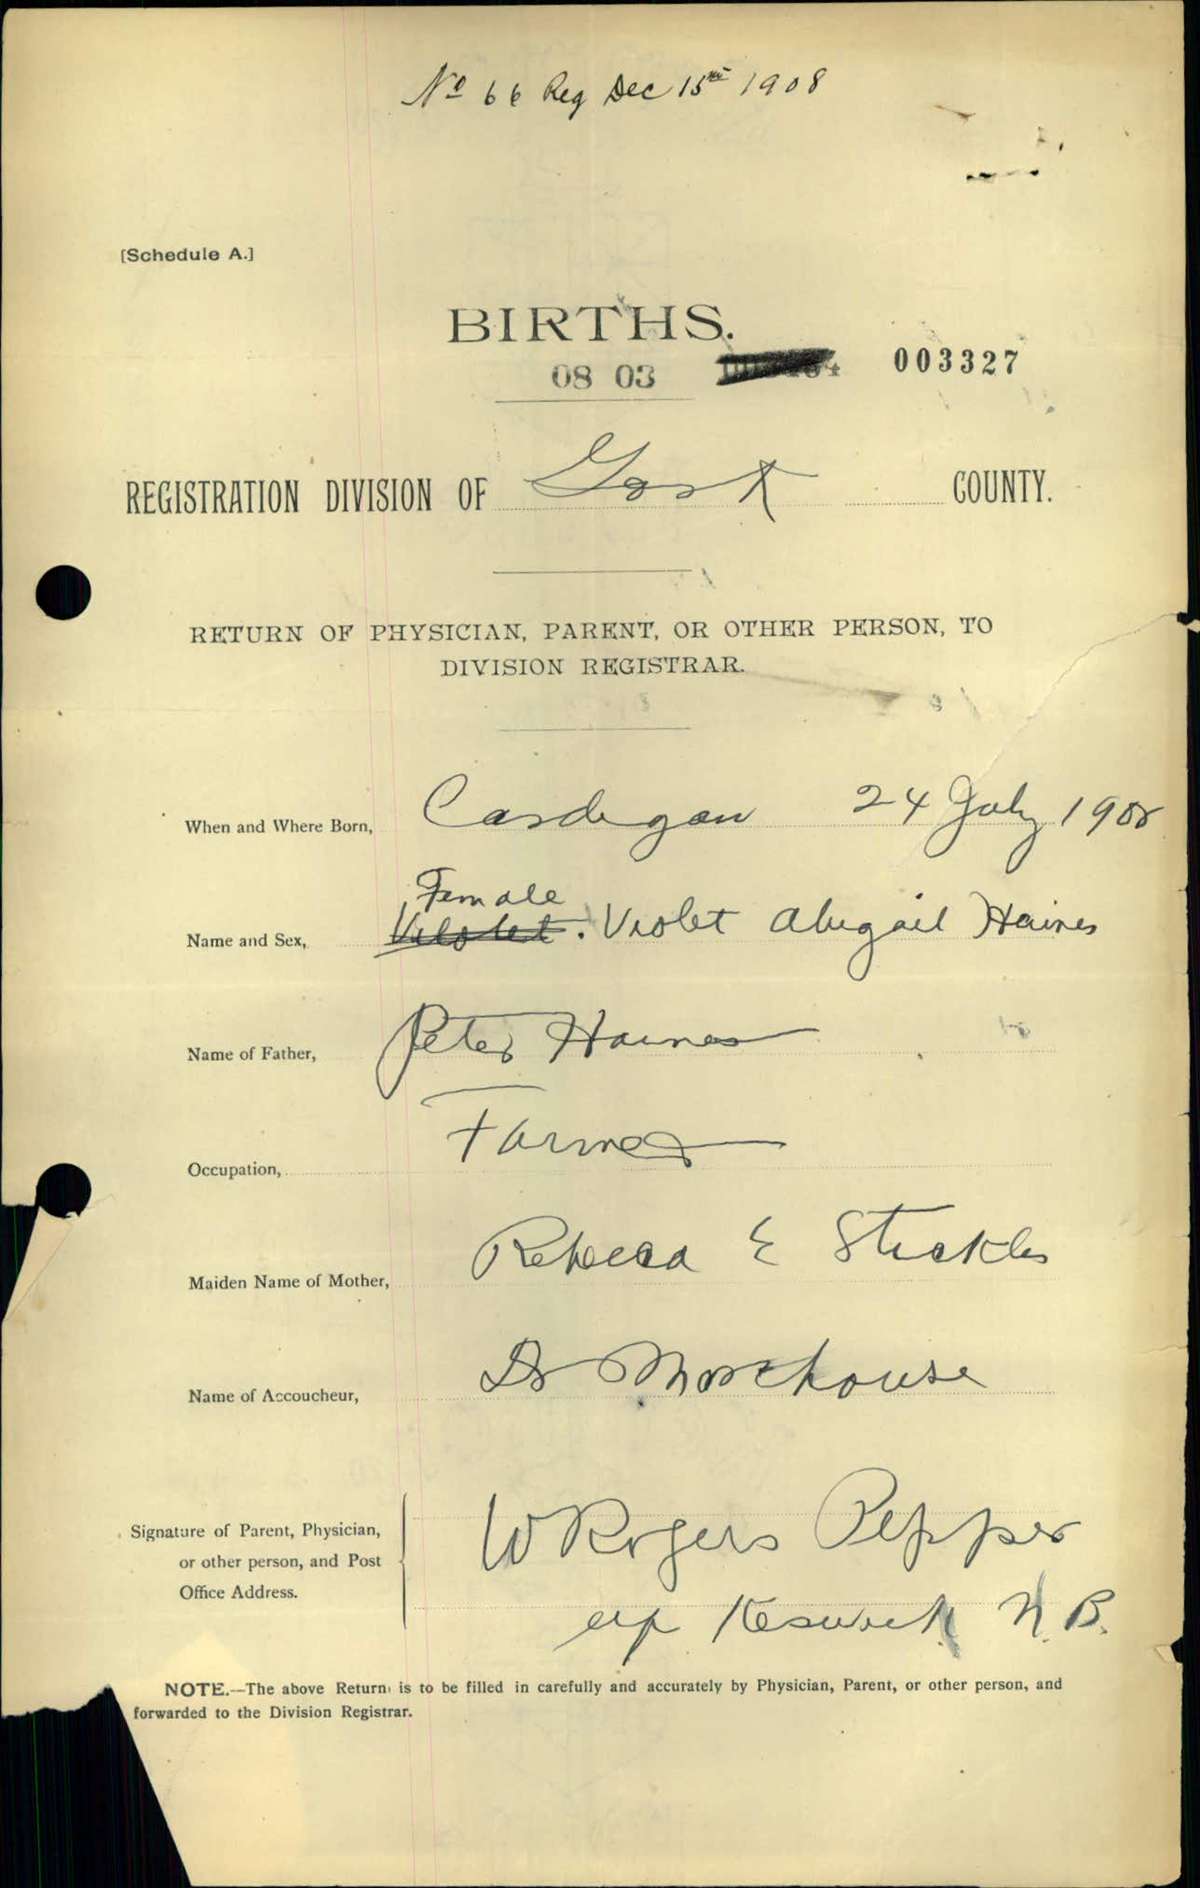 No 66 Reg Dec 15th 1908
[Schedule A.]
BIRTHS.
08 03 003327
REGISTRATION DIVISION OF York COUNTY.
RETURN OF PHYSICIAN, PARENT, OR OTHER PERSON, TO
DIVISION REGISTRAR.
When and Where Born, Cardigan 24 July 1908
Female
Name and Sex, Violet Abigail Haines
Name of Father, Peter Haines
Occupation, Farmer
Maiden Name of Mother, Rebecca E Stickles
Name of Accoucheur, Dr Morehouse
Signature of Parent, Physician,
or other person, and Post
Office Address.
W Rogers Pepper
up Keswick N.B.
NOTE.—The above Return is to be filled in carefully and accurately by Physician, Parent, or other person, and
forwarded to the Division Registrar.